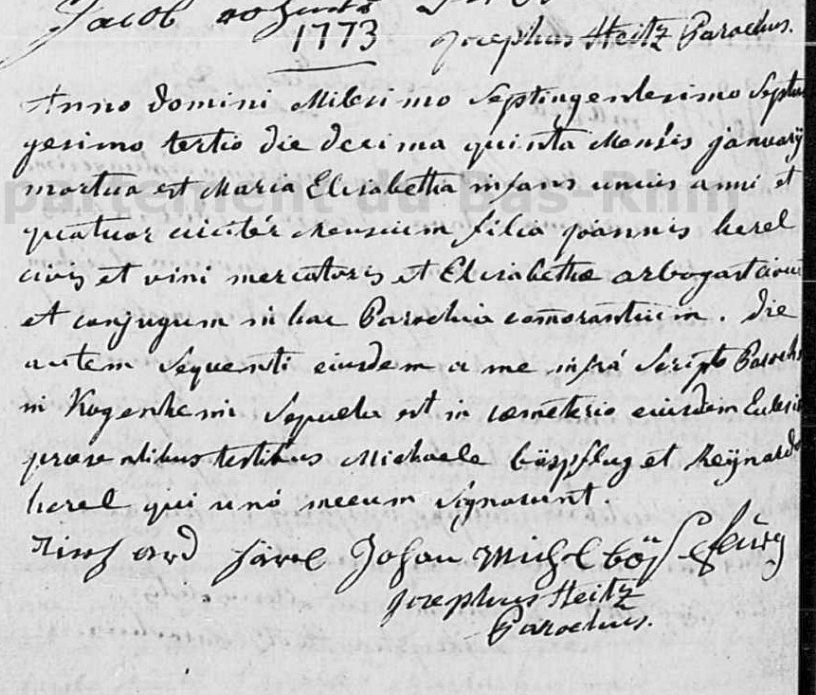 Jacob
1773 Josephus Heitz Parochus.
Anno domini Milesimo Septingentesimo Septua
gesimo tertio die decima quinta Mensis january
mortua est Maria Elisabetha infans unius anni et
quatuor circiter Mensium filia joannis herel
civis et vini mercatoris et Elisabethæ arbogast
et conjugum in hac Parochia comorantium. die
autem sequenti eiusdem a me infrá Scripto Paroch
in Kogenheim Sepulta est in cœmeterio eiusdem Eclesi
præsentibus testibus Michaele böspflug et Reÿnard
herel qui unó mecum Signarunt.
Johan Michel
Josephus Heitz
Parochus.
partement du Bas-Rhin